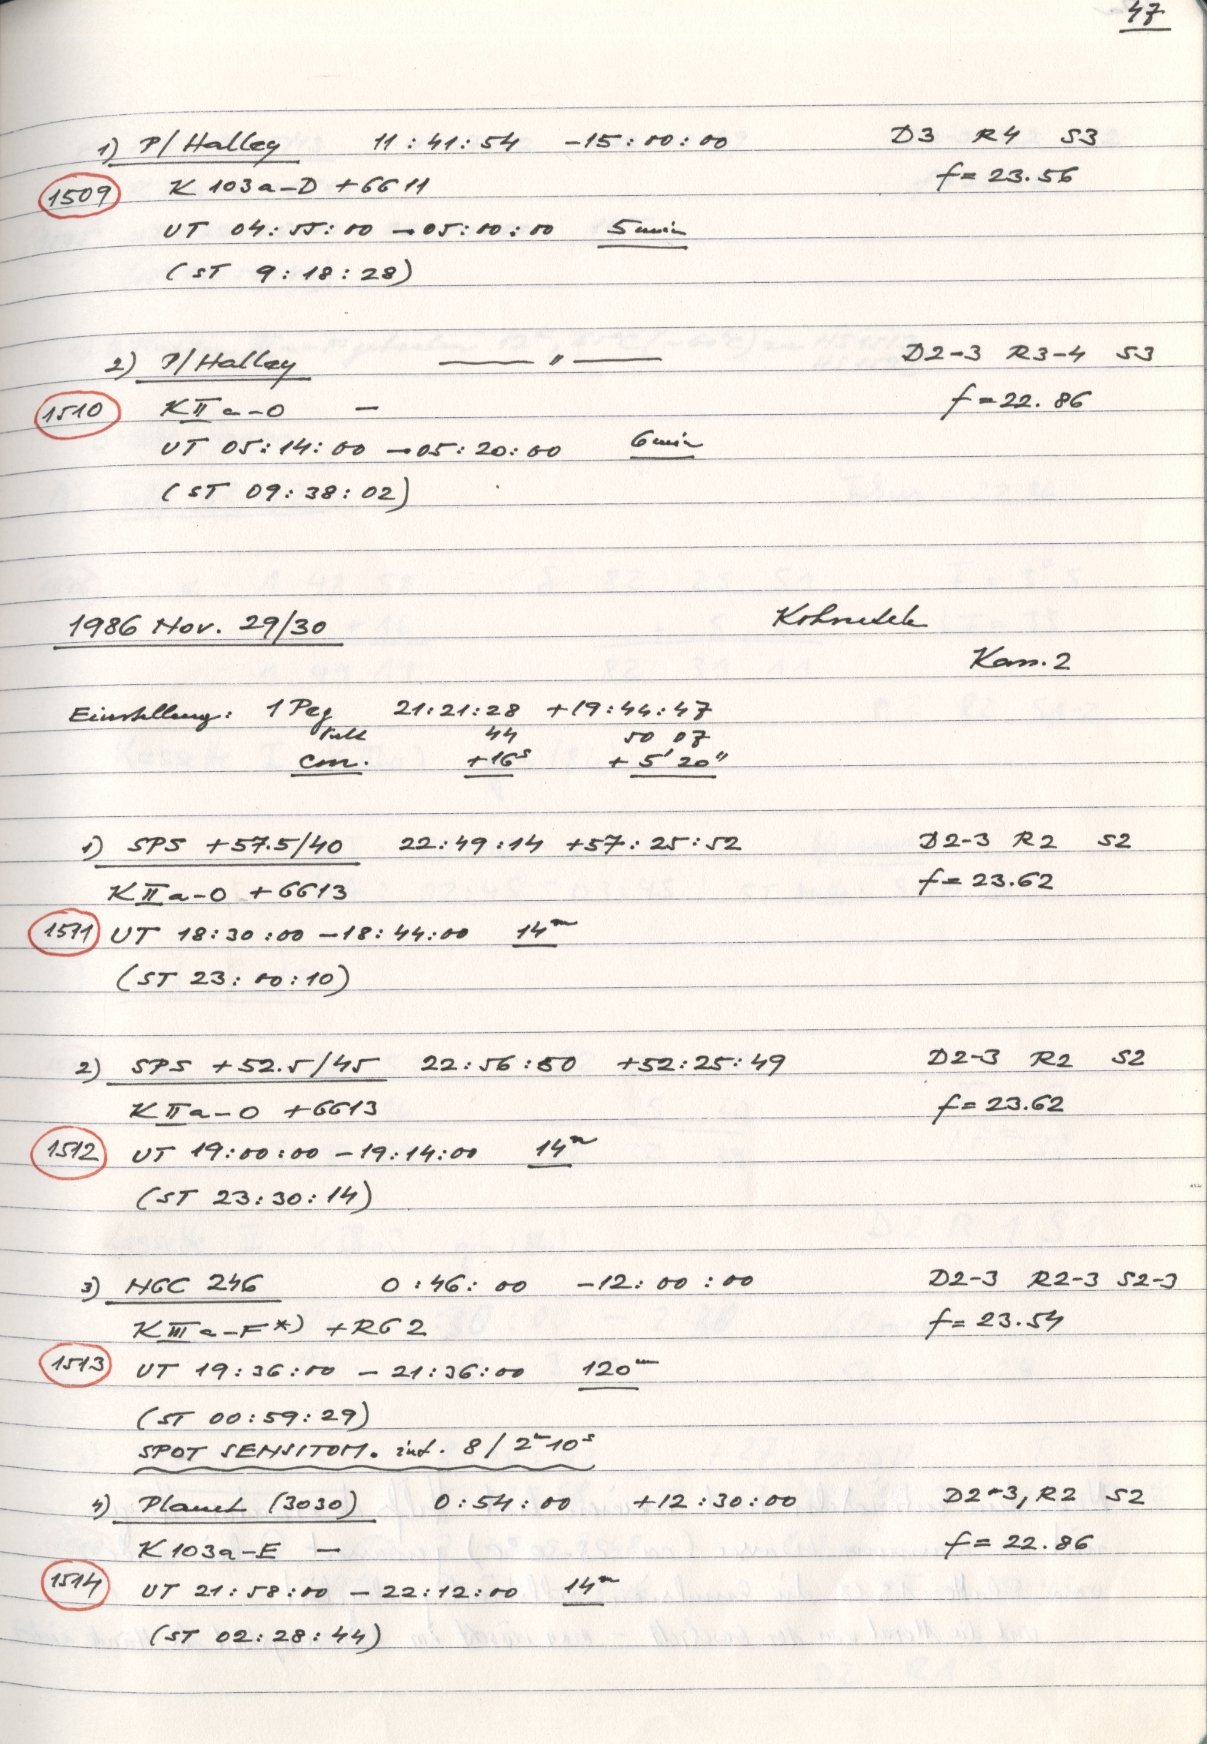 47
1) P/Halley 11:41:54 -15:00:00 D3 R4 S3
1509 K 103a-D +GG11 f=23.56
UT 04:55:00 → 05:00:00 5min
(ST 9:18:28)
2) P/Halley —— " —— D2-3 R3-4 S3
1510 K II a-O — f=22.86
UT 05:14:00 → 05:20:00 6min
(ST 09:38:02)
1986 Nov. 29/30 Kohoutek
Kass. 2
Einstellung: 1 Peg 21:21:28 +19:44:47
44 50 07
corr. +16s +5'20"
1) SPS +57.5/40 22:49:14 +57:25:52 D2-3 R2 S2
K II a-O +GG13 f=23.62
1511 UT 18:30:00 - 18:44:00 14m
(ST 23:00:10)
2) SPS +52.5/45 22:56:50 +52:25:49 D2-3 R2 S2
K II a-O +GG13 f=23.62
1512 UT 19:00:00 - 19:14:00 14m
(ST 23:30:14)
3) NGC 246 0:46:00 -12:00:00 D2-3 R2-3 S2-3
K III a-F*) +RG2 f=23.54
1513 UT 19:36:00 - 21:36:00 120m
(ST 00:59:29)
SPOT SENSITOM. int. 8/2m10s
4) Planet (3030) 0:54:00 +12:30:00 D2-3, R2 S2
K 103a-E — f=22.86
1514 UT 21:58:00 - 22:12:00 14m
(ST 02:28:44)